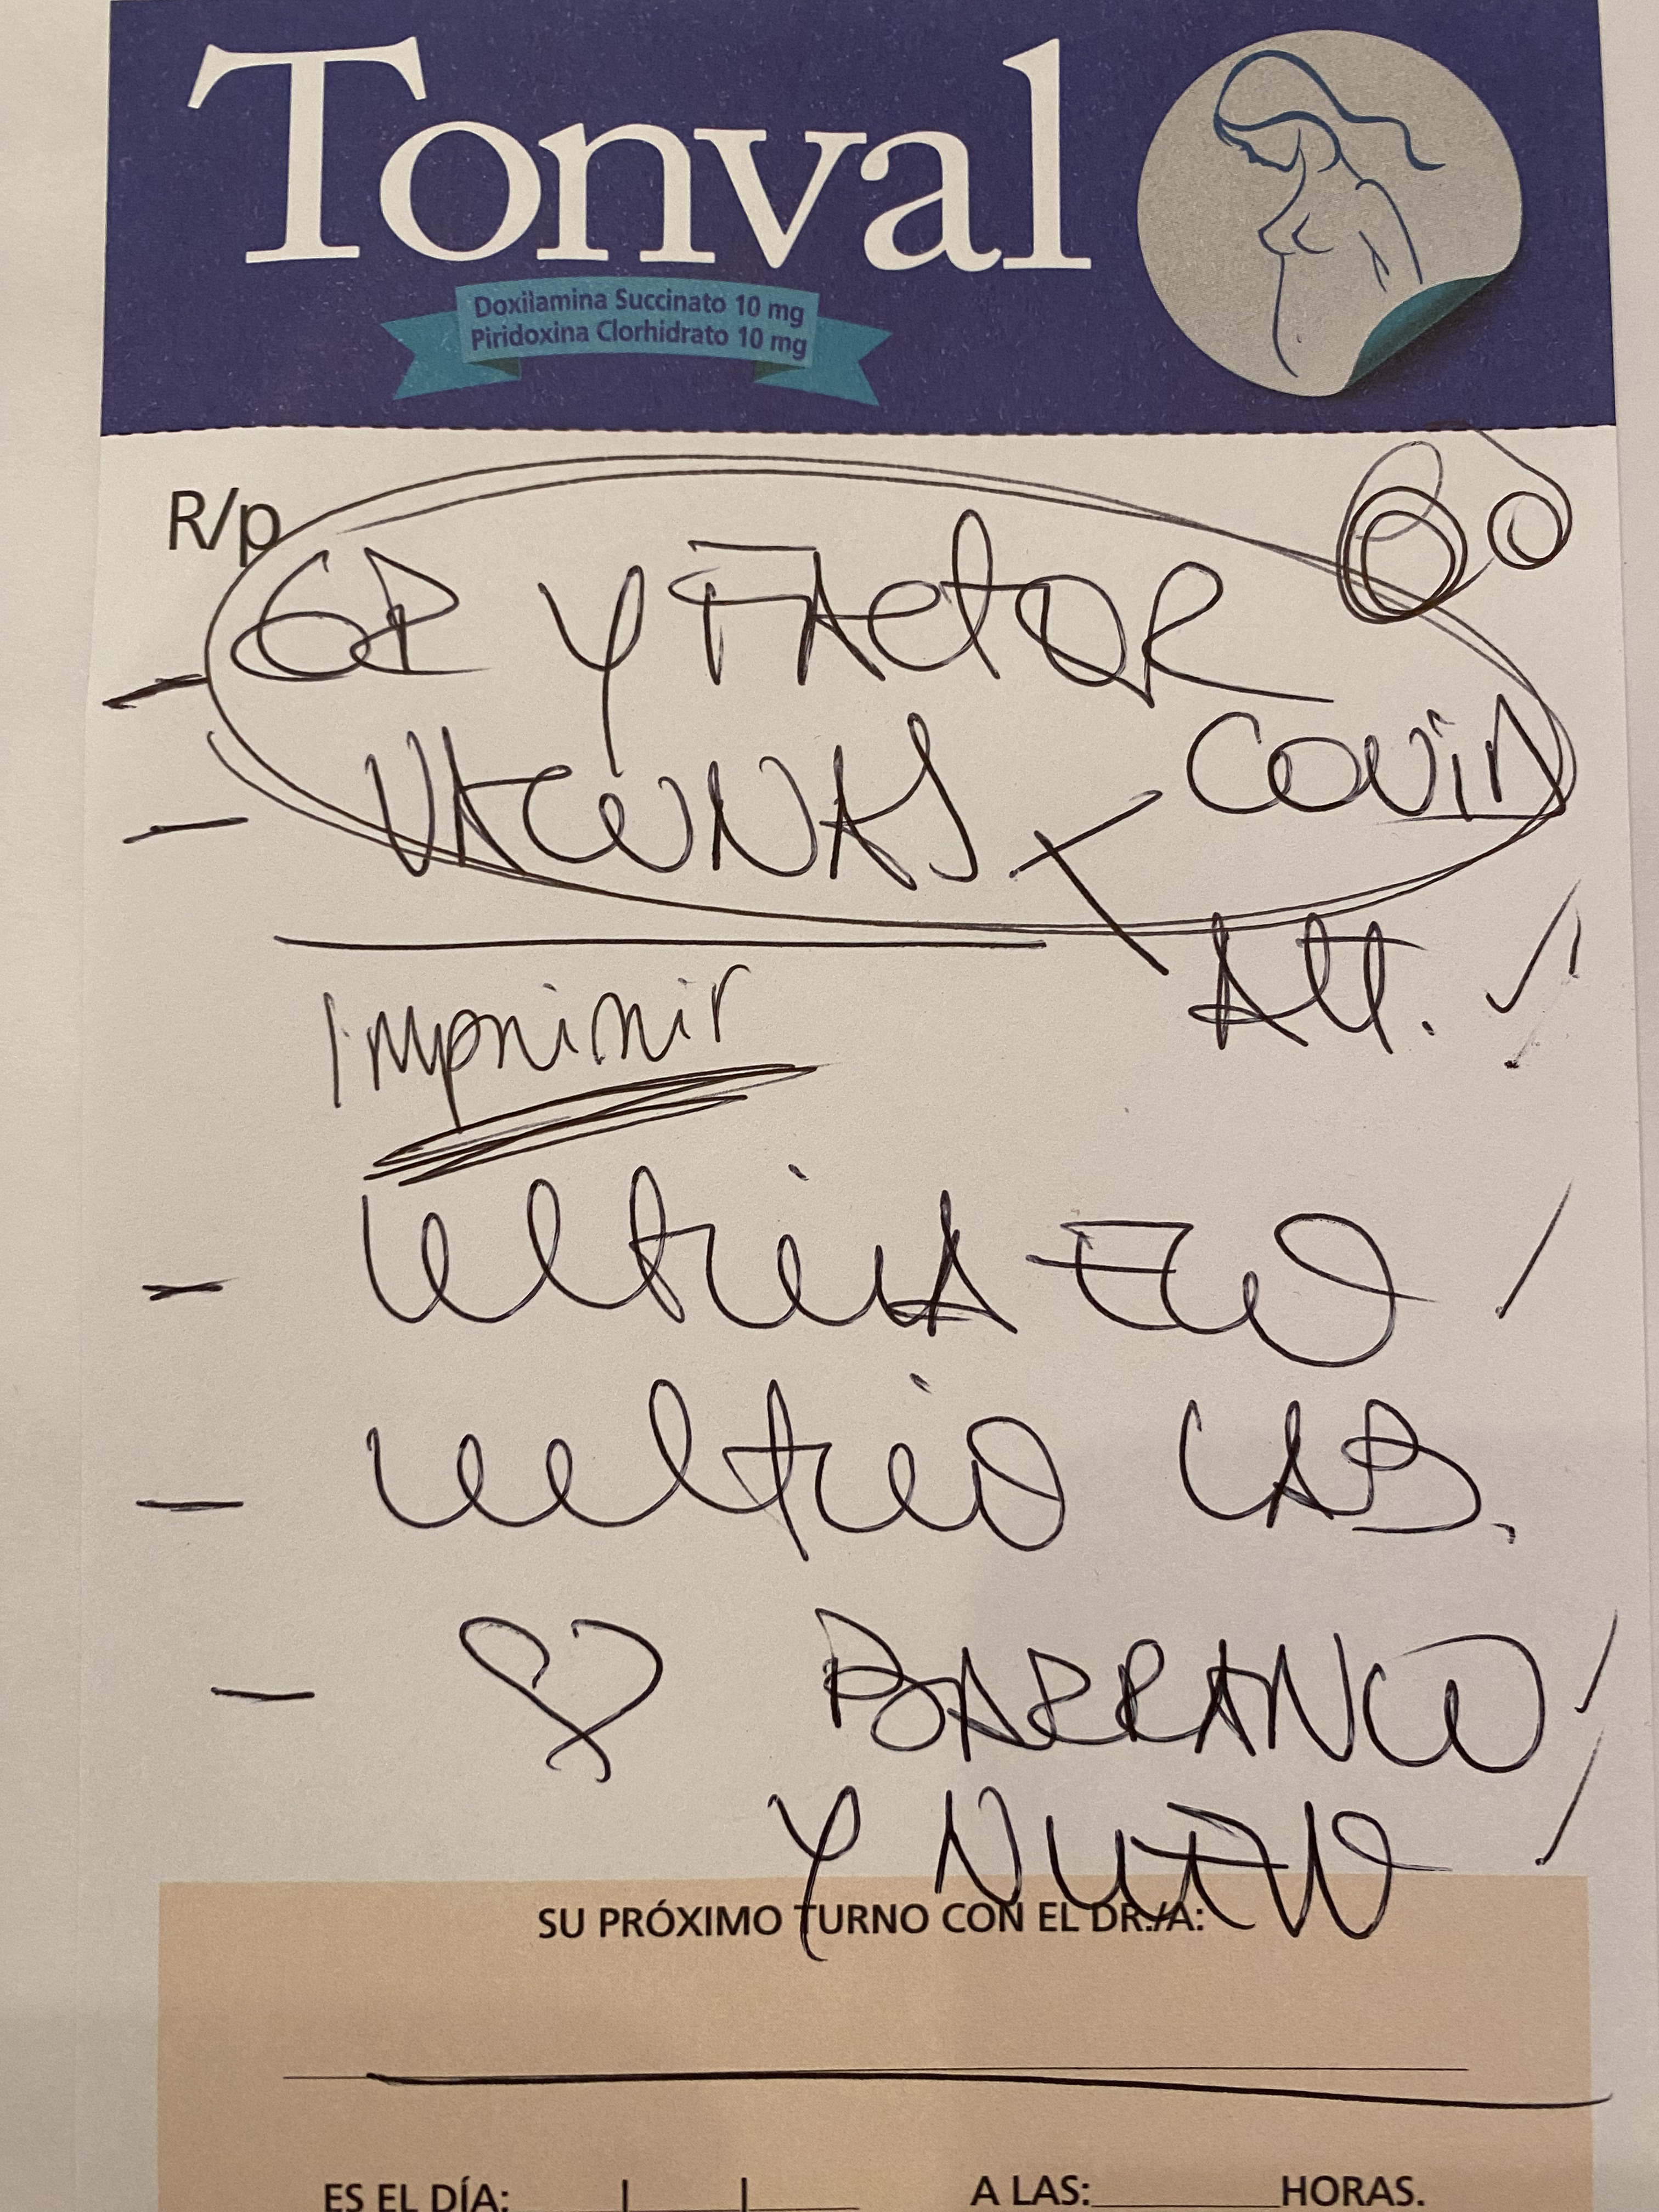 Tonval
Doxilamina Succinato 10 mg
Piridoxina Clorhidrato 10 mg
R/p
- GR Y FACTOR
- VACUNAS COVID
Att.
Imprimir
- ultima ECO
- ultimo LAB.
- ♡ BARRANCO
Y NUEVO
SU PRÓXIMO TURNO CON EL DR./A:
ES EL DÍA: A LAS: HORAS.